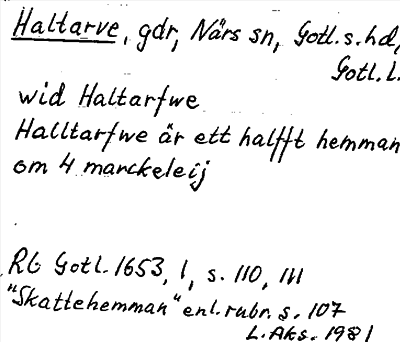 Haltarve, gdr, Närs sn, Gotl. s. hd,
Gotl. l.
wid Haltarfwe
Halltarfwe är ett halfft hemman
om 4 marckeleij
Rb Gotl. 1653, 1, s. 110, 111
"Skattehemman" enl. rubr. s. 107
L. Aks. 1981